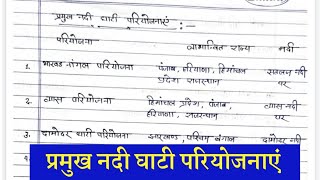 प्रमुख नदी घाटी परियोजनाएं :
परियोजना लाभान्वित राज्य नदी
1. भाखड़ा नांगल परियोजना पंजाब, हरियाणा, हिमांचल सतलज नदी
प्रदेश राजस्थान पर
2. व्यास परियोजना हिमांचल प्रदेश, पंजाब, व्यास नदी
हरियाणा, राजस्थान पर
3. दामोदर घाटी परियोजना झारखण्ड, पश्चिम बंगाल दामोदर नदी
प्रमुख नदी घाटी परियोजनाएं